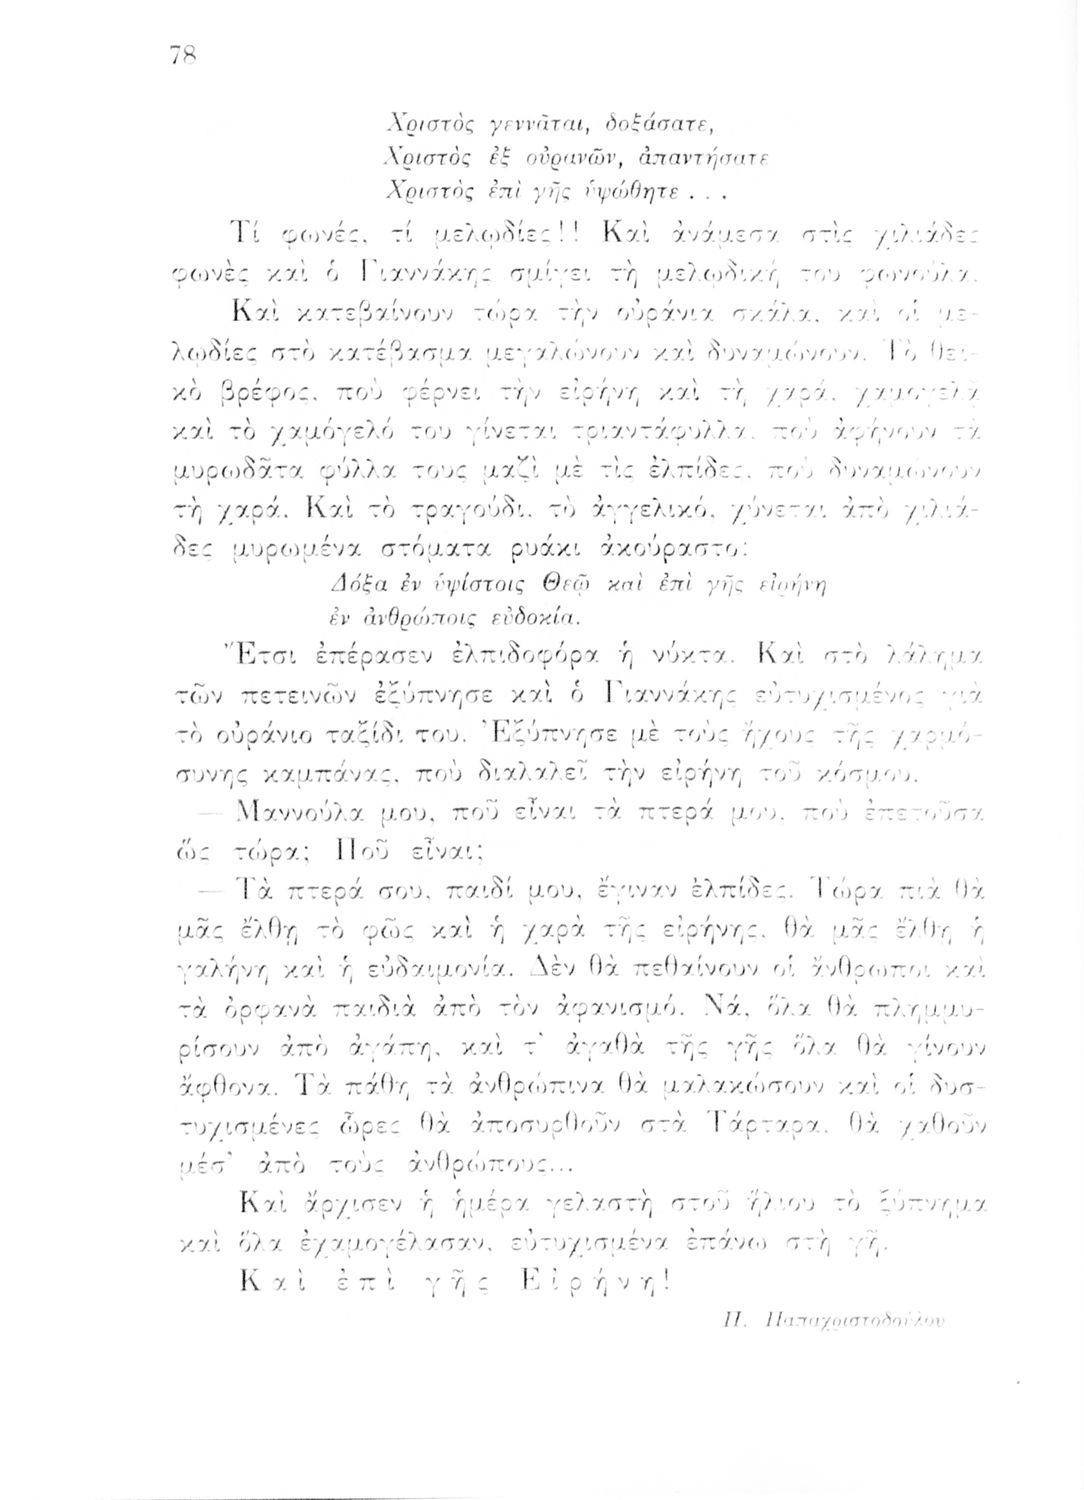 78
Χριστὸς γεννᾶται, δοξάσατε,
Χριστὸς ἐξ οὐρανῶν, ἀπαντήσατε
Χριστὸς ἐπὶ γῆς ὑψώθητε . . .
Τί φωνές, τί μελωδίες!! Καὶ ἀνάμεσα στὶς χιλιάδες
φωνὲς καὶ ὁ Γιαννάκης σμίγει τὴ μελωδική του φωνούλα.
Καὶ κατεβαίνουν τώρα τὴν οὐράνια σκάλα, καὶ οἱ με-
λωδίες στὸ κατέβασμα μεγαλώνουν καὶ δυναμώνουν. Τὸ θεϊ-
κὸ βρέφος, ποὺ φέρνει τὴν εἰρήνη καὶ τὴ χαρά, χαμογελᾶ
καὶ τὸ χαμόγελό του γίνεται τριαντάφυλλα, ποὺ ἀφήνουν τὰ
μυρωδᾶτα φύλλα τους μαζὶ μὲ τὶς ἐλπίδες, ποὺ δυναμώνουν
τὴ χαρά. Καὶ τὸ τραγούδι, τὸ ἀγγελικό, χύνεται ἀπὸ χιλιά-
δες μυρωμένα στόματα ρυάκι ἀκούραστο:
Δόξα ἐν ὑψίστοις Θεῷ καὶ ἐπὶ γῆς εἰρήνη
ἐν ἀνθρώποις εὐδοκία.
Ἔτσι ἐπέρασεν ἐλπιδοφόρα ἡ νύκτα. Καὶ στὸ λάλημα
τῶν πετεινῶν ἐξύπνησε καὶ ὁ Γιαννάκης εὐτυχισμένος γιὰ
τὸ οὐράνιο ταξίδι του. Ἐξύπνησε μὲ τοὺς ἤχους τῆς χαρμό-
συνης καμπάνας, ποὺ διαλαλεῖ τὴν εἰρήνη τοῦ κόσμου.
— Μαννούλα μου, ποῦ εἶναι τὰ πτερά μου, ποὺ ἐπετοῦσα
ὥς τώρα; Ποῦ εἶναι;
— Τὰ πτερά σου, παιδί μου, ἔγιναν ἐλπίδες. Τώρα πιὰ θὰ
μᾶς ἔλθη τὸ φῶς καὶ ἡ χαρὰ τῆς εἰρήνης, θὰ μᾶς ἔλθη ἡ
γαλήνη καὶ ἡ εὐδαιμονία. Δὲν θὰ πεθαίνουν οἱ ἄνθρωποι καὶ
τὰ ὀρφανὰ παιδιὰ ἀπὸ τὸν ἀφανισμό. Νά, ὅλα θὰ πλημμυ-
ρίσουν ἀπὸ ἀγάπη, καὶ τ' ἀγαθὰ τῆς γῆς ὅλα θὰ γίνουν
ἄφθονα. Τὰ πάθη τὰ ἀνθρώπινα θὰ μαλακώσουν καὶ οἱ δυσ-
τυχισμένες ὧρες θὰ ἀποσυρθοῦν στὰ Τάρταρα, θὰ χαθοῦν
μέσ' ἀπὸ τοὺς ἀνθρώπους...
Καὶ ἄρχισεν ἡ ἡμέρα γελαστὴ στοῦ ἥλιου τὸ ξύπνημα
καὶ ὅλα ἐχαμογέλασαν, εὐτυχισμένα ἐπάνω στὴ γῆ.
Καὶ ἐπὶ γῆς Εἰρήνη!
Π. Παπαχριστοδούλου